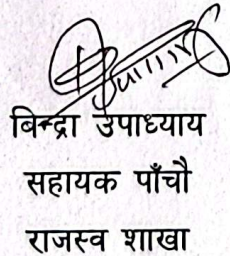 बिन्द्रा उपाध्याय
सहायक पाँचौ
राजस्व शाखा